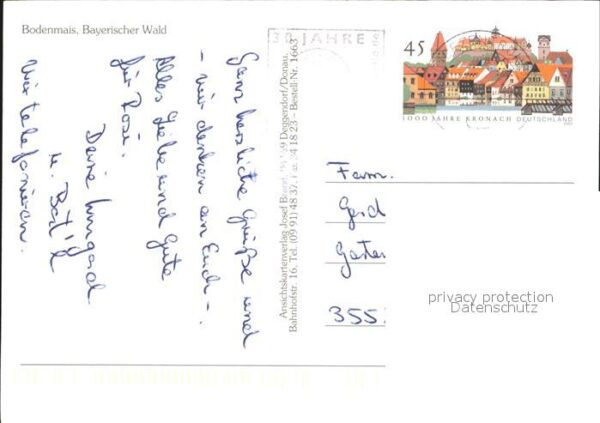 Bodenmais, Bayerischer Wald
Ganz herzliche Grüße und
- wir denken an Euch -.
Alles Liebe und Gute
für Rosi.
Deine Irmgard
u.
Wir telefonieren.
Ansichtskartenverlag Josef Deggendorf/Donau,
Bahnhofstr. 16, Tel. (09 91) 48 37, 18 23 - Bestell-Nr. 1663
30 JAHRE
45
1000 JAHRE KRONACH DEUTSCHLAND
Fam.
Gerd
355
privacy protection
Datenschutz